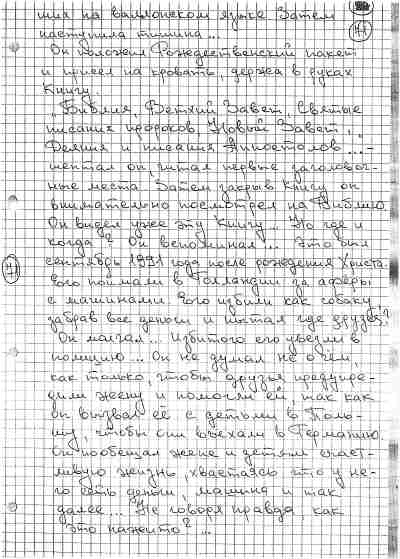 ших на валлонском языке Затем
наступила тишина...
71
Он положил Рождественский пакет
и присел на кровать, держа в руках
Книгу.
„Библия, Ветхий Завет, Святые
писания пророков, Новый Завет,
Деяния и писания Апостолов..." –
шептал он, читая первые заголовоч-
ные места. Затем закрыв Книгу он
внимательно посмотрел на Библию
Он видел уже эту Книгу... Но где и
когда? Он вспоминал... Это был
71
сентябрь 1991 года после рождения Христа
его поймали в Голландии за аферы
с машинами. Его избили как собаку,
забрав все деньги и пытая где друзья?
Он молчал... Избитого его увезли в
полицию... Он не думал не о чем,
как только, чтобы друзья предупре-
дили жену и помогли ей, так как
он вызвал её с детьми в Поль-
шу, чтобы они въехали в Германию.
Он пообещал жене и детям счаст-
ливую жизнь, хвастаясь что у не-
го есть деньги, машина и так
далее... Не говоря правда как
это нажито? ...